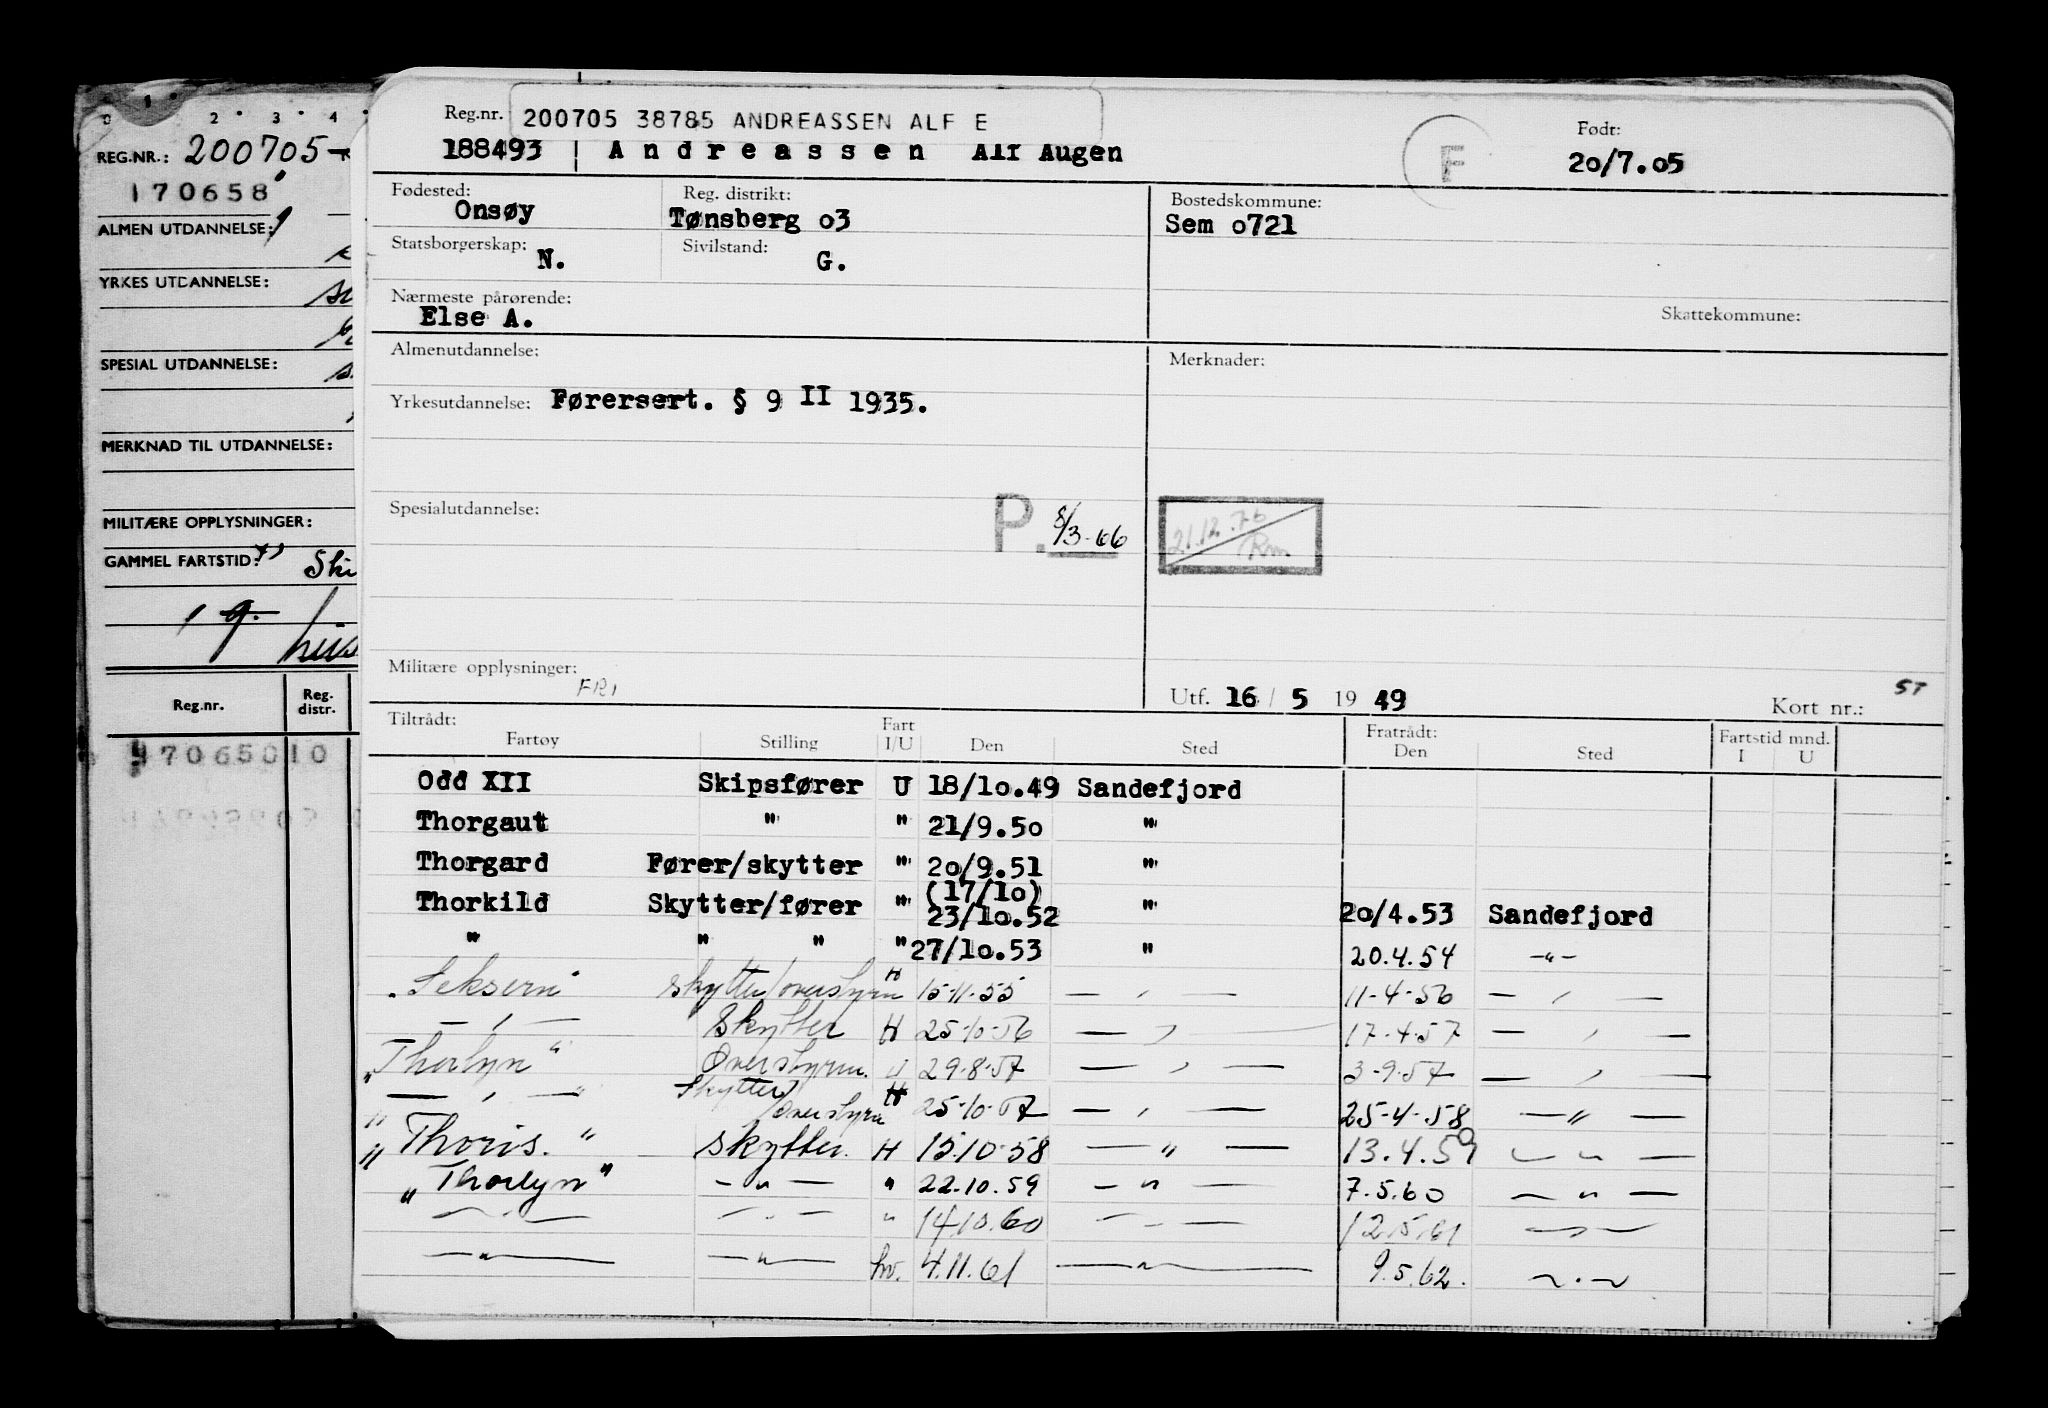 0 1 2 3 4
REG.NR.: 200705-
170658
ALMEN UTDANNELSE:
YRKES UTDANNELSE:
SPESIAL UTDANNELSE:
MERKNAD TIL UTDANNELSE:
MILITÆRE OPPLYSNINGER:
GAMMEL FARTSTID:
Reg.nr. Reg. distr.
97065010
Reg.nr. 200705 38785 ANDREASSEN ALF E
188493 Andreassen Alf Augen
F
Født:
20/7.05
Fødested: Onsøy
Reg. distrikt: Tønsberg 03
Bostedskommune:
Sem 0721
Statsborgerskap: N.
Sivilstand: G.
Nærmeste pårørende:
Else A.
Skattekommune:
Almenutdannelse:
Merknader:
Yrkesutdannelse: Førersert. § 9 II 1935.
Spesialutdannelse:
P. 8/3-66
21.12.76
Rm
Militære opplysninger:
FRI
Utf. 16 / 5 19 49
Kort nr.: ST
Tiltrådt: Fartøy Stilling Fart I/U Den Sted Fratrådt: Den Sted Fartstid mnd. I U
Odd XII Skipsfører U 18/10.49 Sandefjord
Thorgaut " " 21/9.50 "
Thorgard Fører/skytter " 20/9.51 "
(17/10)
Thorkild Skytter/fører " 23/10.52 " 20/4.53 Sandefjord
" " " " 27/10.53 " 20.4.54 -"-
"Seksern" skytter/overstyrm H 15-11-55 — , — 11-4-56 — , —
— , — Skytter H 25-10-56 — , 17-4-57 — , —
"Thorlyn" Overstyrm. U 29-8-57 — , — 3-9-57 — , —
— , — Skytter/overstyrm H 25-10-57 — , — 25-4-58 — " —
"Thoris." skytter. H 15.10-58 — " — 13.4.59 — " —
"Thorlyn" — " — " 22.10.59 — " — 7.5.60 — " —
— " — — " — " 14.10.60 — " — 12.5.61 — " —
— " — — " — hv. 4.11.61 — " — 9.5.62. — " —